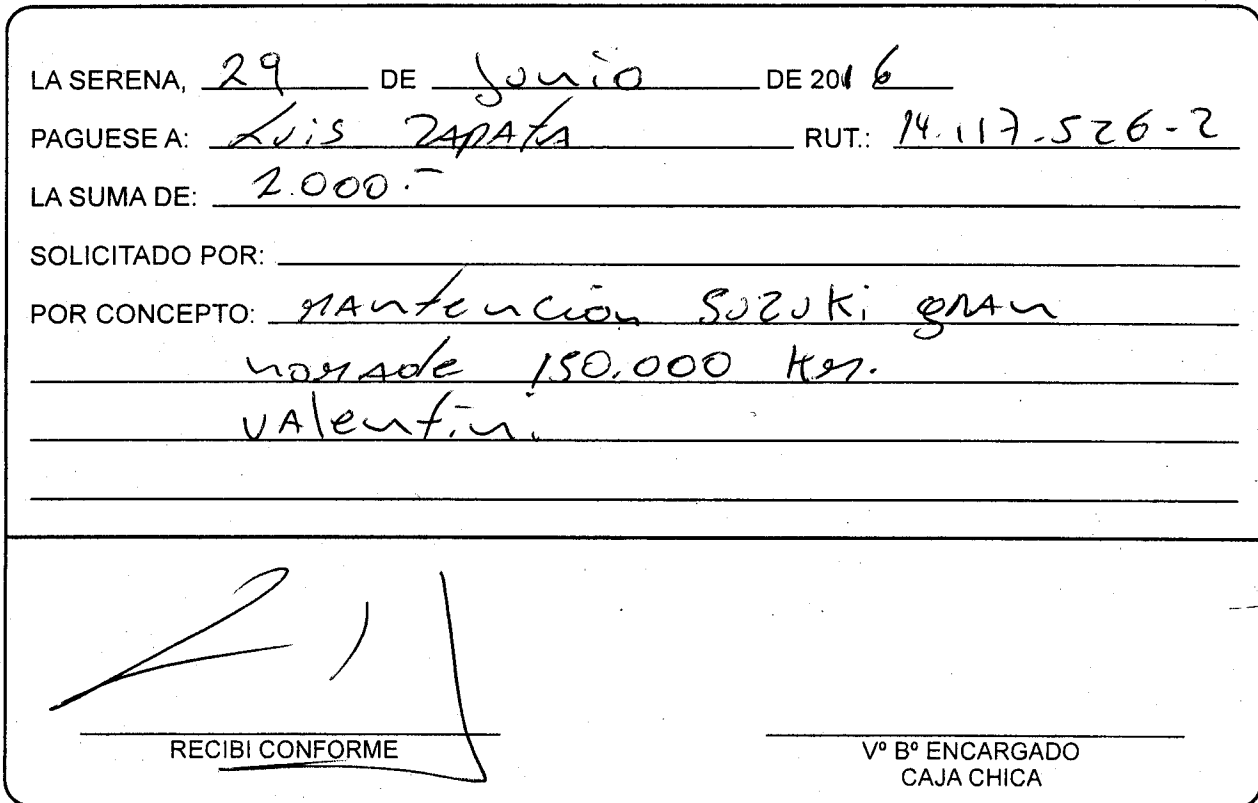 LA SERENA, 29 DE Junio DE 2016
PAGUESE A: Luis ZAPATA RUT.: 14.117.526-2
LA SUMA DE: 2.000.-
SOLICITADO POR:
POR CONCEPTO: MANtención SUZUKi gRAN
nomade 150.000 Km.
VAlentin.
RECIBI CONFORME
Vº Bº ENCARGADO
CAJA CHICA